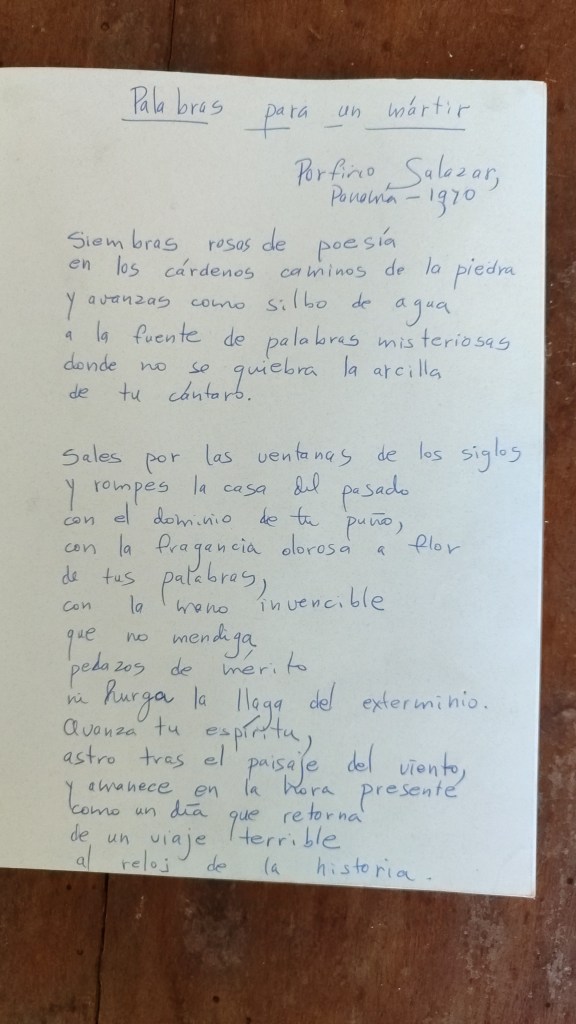 Palabras para un mártir
Porfirio Salazar,
Panamá - 1970
Siembras rosas de poesía
en los cárdenos caminos de la piedra
y avanzas como silbo de agua
a la fuente de palabras misteriosas
donde no se quiebra la arcilla
de tu cántaro.
Sales por las ventanas de los siglos
y rompes la casa del pasado
con el dominio de tu puño,
con la fragancia olorosa a flor
de tus palabras,
con la mano invencible
que no mendiga
pedazos de mérito
ni hurga la llaga del exterminio.
Avanza tu espíritu,
astro tras el paisaje del viento,
y amanece en la hora presente
como un día que retorna
de un viaje terrible
al reloj de la historia.